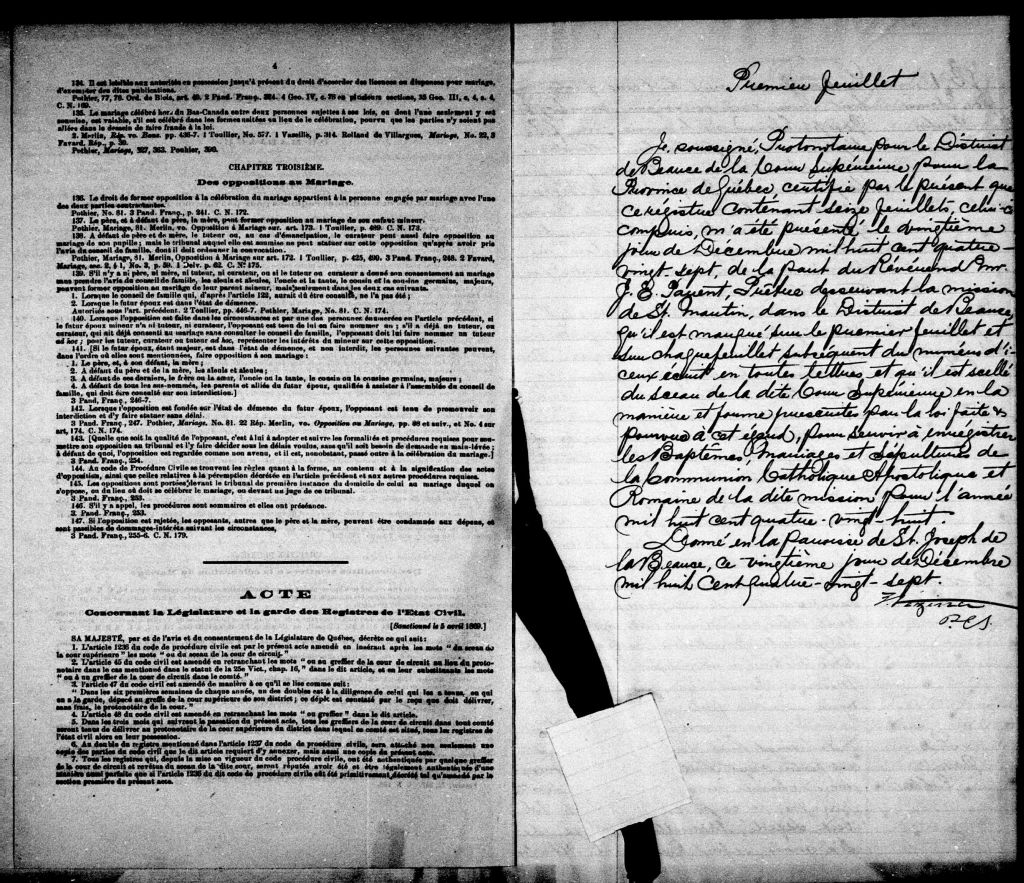 4
134. Il est loisible aux autorités en possession jusqu'à présent du droit d'accorder des licences ou dispenses pour mariage,
d'exempter des dites publications.
Pothier, 77, 78. Ord. de Blois, art. 40. 2 Pand. Franç. 324. 4 Geo. IV, c. 75 en plusieurs sections, 35 Geo. III, c. 4, s. 4,
C. N. 169.
135. Le mariage célébré hors du Bas-Canada entre deux personnes sujettes à ses lois, ou dont l'une seulement y est
soumise, est valable, s'il est célébré dans les formes usitées au lieu de la célébration, pourvu que les parties n'y soient pas
allées dans le dessein de faire fraude à la loi.
2. Merlin, Rép. vo. Bans. pp. 436-7. 1 Toullier, No. 577. 1 Vazeille, p. 314. Rolland de Villargues, Mariage, No. 22, 3
Favard, Rép., p. 39.
Pothier, Mariage, 327, 363. Pothier, 398.
CHAPITRE TROISIÈME.
Des oppositions au Mariage.
136. Le droit de former opposition à la célébration du mariage appartient à la personne engagée par mariage avec l'une
des deux parties contractantes.
Pothier, No. 81. 3 Pand. Franç., p. 241. C. N. 172.
137. Le père, et à défaut du père, la mère, peut former opposition au mariage de son enfant mineur.
Pothier, Mariage, 81. Merlin, vo. Opposition à Mariage sur. art. 173. 1 Toullier, p. 489. C. N. 173.
138. A défaut de père et de mère, le tuteur ou, au cas d'émancipation, le curateur peut aussi faire opposition au
mariage de son pupille; mais le tribunal auquel elle est soumise ne peut statuer sur cette opposition qu'après avoir pris
l'avis du conseil de famille, dont il doit ordonner la convocation.
Pothier, Mariage, 81. Merlin, Opposition à Mariage sur art. 172. 1 Toullier, p. 425, 490. 3 Pand. Franç., 248. 2 Favard,
Mariage, sec. 2, § 1, No. 3, p. 59. 1 Delv. p. 62. C. N. 175.
139. S'il n'y a ni père, ni mère, ni tuteur, ni curateur, ou si le tuteur ou curateur a donné son consentement au mariage
sans prendre l'avis du conseil de famille, les aïeuls et aïeules, l'oncle et la tante, le cousin et la cousine germains, majeurs,
peuvent former opposition au mariage de leur parent mineur, mais seulement dans les deux cas suivants.
1. Lorsque le conseil de famille qui, d'après l'article 122, aurait dû être consulté, ne l'a pas été;
2. Lorsque le futur époux est dans l'état de démence.
Autorités sous l'art. précédent. 2 Toullier, pp. 446-7. Pothier, Mariage, No. 81. C. N. 174.
140. Lorsque l'opposition est faite dans les circonstances et par une des personnes énoncées en l'article précédent, si
le futur époux mineur n'a ni tuteur, ni curateur, l'opposant est tenu de lui en faire nommer un; s'il a déjà un tuteur, ou
curateur, qui ait déjà consenti au mariage sans consulter le conseil de famille, l'opposant doit lui faire nommer un tuteur
ad hoc; pour les tuteur, curateur ou tuteur ad hoc, représenter les intérêts du mineur sur cette opposition.
141. [Si le futur époux, étant majeur, est dans l'état de démence, et non interdit, les personnes suivantes peuvent,
dans l'ordre où elles sont mentionnées, faire opposition à son mariage:
1. Le père, et, à son défaut, la mère;
2. A défaut du père et de la mère, les aïeuls et aïeules;
3. A défaut de ces derniers, le frère ou la sœur, l'oncle ou la tante, le cousin ou la cousine germains, majeurs;
4. A défaut de tous les sus-nommés, les parents et alliés du futur époux, qualifiés à assister à l'assemblée du conseil de
famille, qui doit être consulté sur son interdiction.]
3 Pand. Franç., 246-7.
142. Lorsque l'opposition est fondée sur l'état de démence du futur époux, l'opposant est tenu de promouvoir son
interdiction et d'y faire statuer sans délai.
3 Pand. Franç., 247. Pothier, Mariage. No. 81. 22 Rép. Merlin, vo. Opposition au Mariage, pp. 88 et suiv., et No. 4 sur
art. 174. C. N. 174.
143. [Quelle que soit la qualité de l'opposant, c'est à lui à adopter et suivre les formalités et procédures requises pour sou-
mettre son opposition au tribunal et l'y faire décider sous les délais voulus, sans qu'il soit besoin de demande en main-levée;
à défaut de quoi, l'opposition est regardée comme non avenue, et il est, nonobstant, passé outre à la célébration du mariage.]
3 Pand. Franç., 254.
144. Au Code de Procédure Civile se trouvent les règles quant à la forme, au contenu et à la signification des actes
d'opposition, ainsi que celles relatives à la péremption décrétée en l'article précédent et aux autres procédures requises.
145. Les oppositions sont portées devant le tribunal de première instance du domicile de celui au mariage duquel on
s'oppose, ou du lieu où doit se célébrer le mariage, ou devant un juge de ce tribunal.
3 Pand. Franç., 253.
146. S'il y a appel, les procédures sont sommaires et elles ont préséance.
3. Pand. Franç., 253.
147. Si l'opposition est rejetée, les opposants, autres que le père et la mère, peuvent être condamnés aux dépens, et
sont passibles de dommages-intérêts suivant les circonstances.
3 Pand. Franç., 255-6. C. N. 179.
ACTE
Concernant la Législature et la garde des Registres de l'Etat Civil.
[Sanctionné le 5 avril 1869.]
SA MAJESTÉ, par et de l'avis et du consentement de la Législature de Québec, décrète ce qui suit:
1. L'article 1236 du code de procédure civile est par le présent acte amendé en insérant après les mots "du sceau de
la cour supérieure" les mots "ou du sceau de la cour de circuit."
2. L'article 45 du code civil est amendé en retranchant les mots "ou au greffier de la cour de circuit au lieu du proto-
notaire dans le cas mentionné dans le statut de la 25e Vict., chap. 16," dans le dit article, et en leur substituant les mots
"ou à un greffier de la cour de circuit dans le comté."
3. l'article 47 du code civil est amendé de manière à ce qu'il se lise comme suit:
"Dans les six premières semaines de chaque année, un des doubles est à la diligence de celui qui les a tenus, ou qui
en a la garde, déposé au greffe de la cour supérieure de son district; ce dépôt est constaté par le reçu que doit délivrer,
sans frais, le protonotaire de la cour."
4. L'article 48 du code civil est amendé en retranchant les mots "ou greffier" dans le dit article.
5. Dans les trois mois qui suivront la passation du présent acte, tous les greffiers de la cour de circuit dans tout comté
seront tenus de délivrer au protonotaire de la cour supérieure du district dans lequel ce comté est situé, tous les registres de
l'état civil alors en leur possession.
6. Au double du registre mentionné dans l'article 1237 du code de procédure civile, sera attaché non seulement une
copie des parties du code civil que le dit article requiert d'y annexer, mais aussi une copie du présent acte.
7. Tous les registres qui, depuis la mise en vigueur du code procédure civile, ont été authentiqués par quelque greffier
de la cour de circuit et revêtus du sceau de la dite cour, seront réputés avoir été et être légalement authentiqués d'une
manière aussi parfaite que si l'article 1236 du dit code de procédure civile eût été primitivement décrété tel qu'amendé par la
section première du présent acte.
Premier feuillet
Je, soussigné, Protonotaire pour le District
de Beauce de la Cour Supérieure pour la
Province de Québec, certifie par le présent que
ce régistre contenant seize feuillets, celui-ci
compris, m'a été présenté le vingtième
jour de Décembre mil huit cent quatre-
vingt-sept, de la part du Révérend Mr.
J. E. Parent, Prêtre desservant la mission
de St. Martin, dans le District de Beauce,
qu'il est marqué sur le premier feuillet et
sur chaque feuillet subséquent du numéro d'i-
ceux écrit en toutes lettres et qu'il est scellé
du sceau de la dite Cour Supérieure en la
manière et forme prescrite par la loi faite &
pourvue à cet égard, pour servir à enrégistrer
les Baptêmes, Mariages et Sépultures de
la Communion Catholique Apostolique et
Romaine de la dite mission pour l'année
mil huit cent quatre-vingt-huit.
Donné en la Paroisse de St. Joseph de
la Beauce, ce vingtième jour de Décembre
mil huit cent quatre-vingt-sept.
P.C.S.